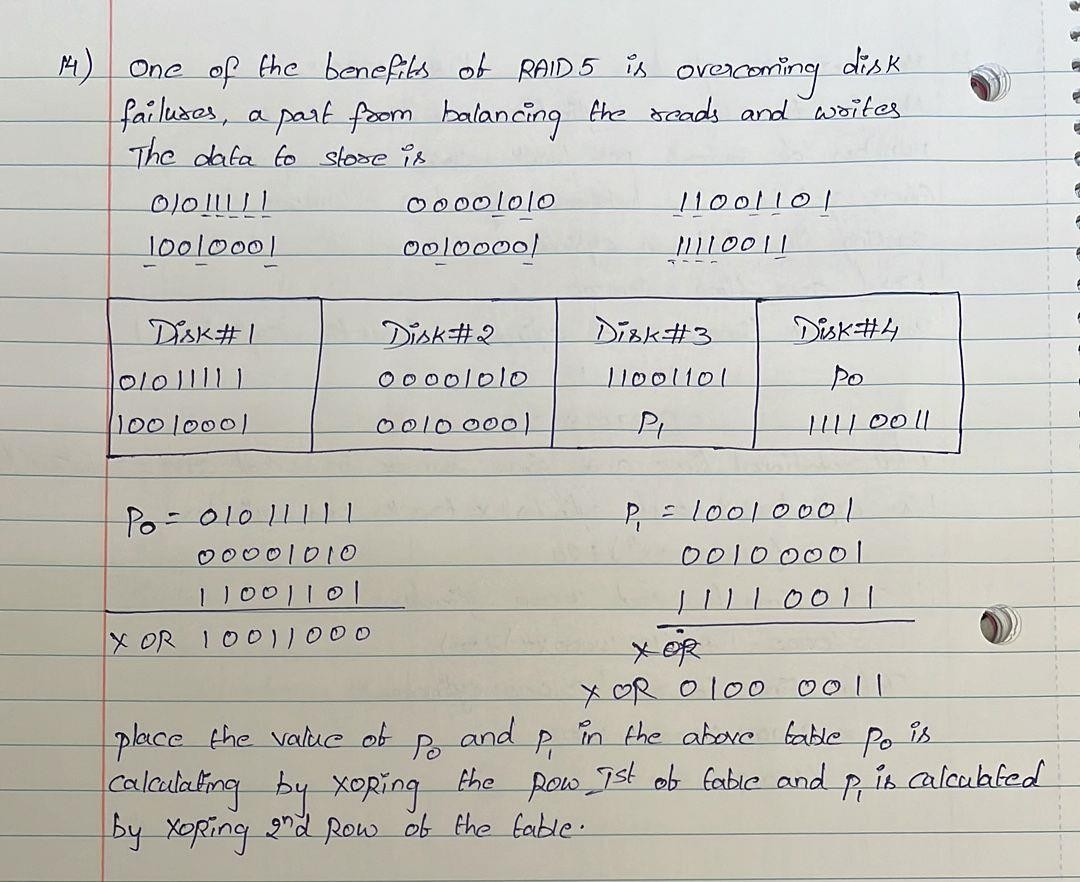 14) One of the benefits of RAID 5 is overcoming disk
failures, a part from balancing the reads and writes
The data to store is
01011111 00001010 11001101
10010001 00100001 11110011
Disk#1 Disk#2 Disk#3 Disk#4
01011111 00001010 11001101 P0
10010001 00100001 P1 11110011
P0 = 01011111 P1 = 10010001
00001010 00100001
11001101 11110011
XOR 10011000 XOR
XOR 0100 0011
place the value of P0 and P1 in the above table P0 is
calculating by XORing the Row Ist of table and P1 is calculated
by XORing 2nd Row of the table.